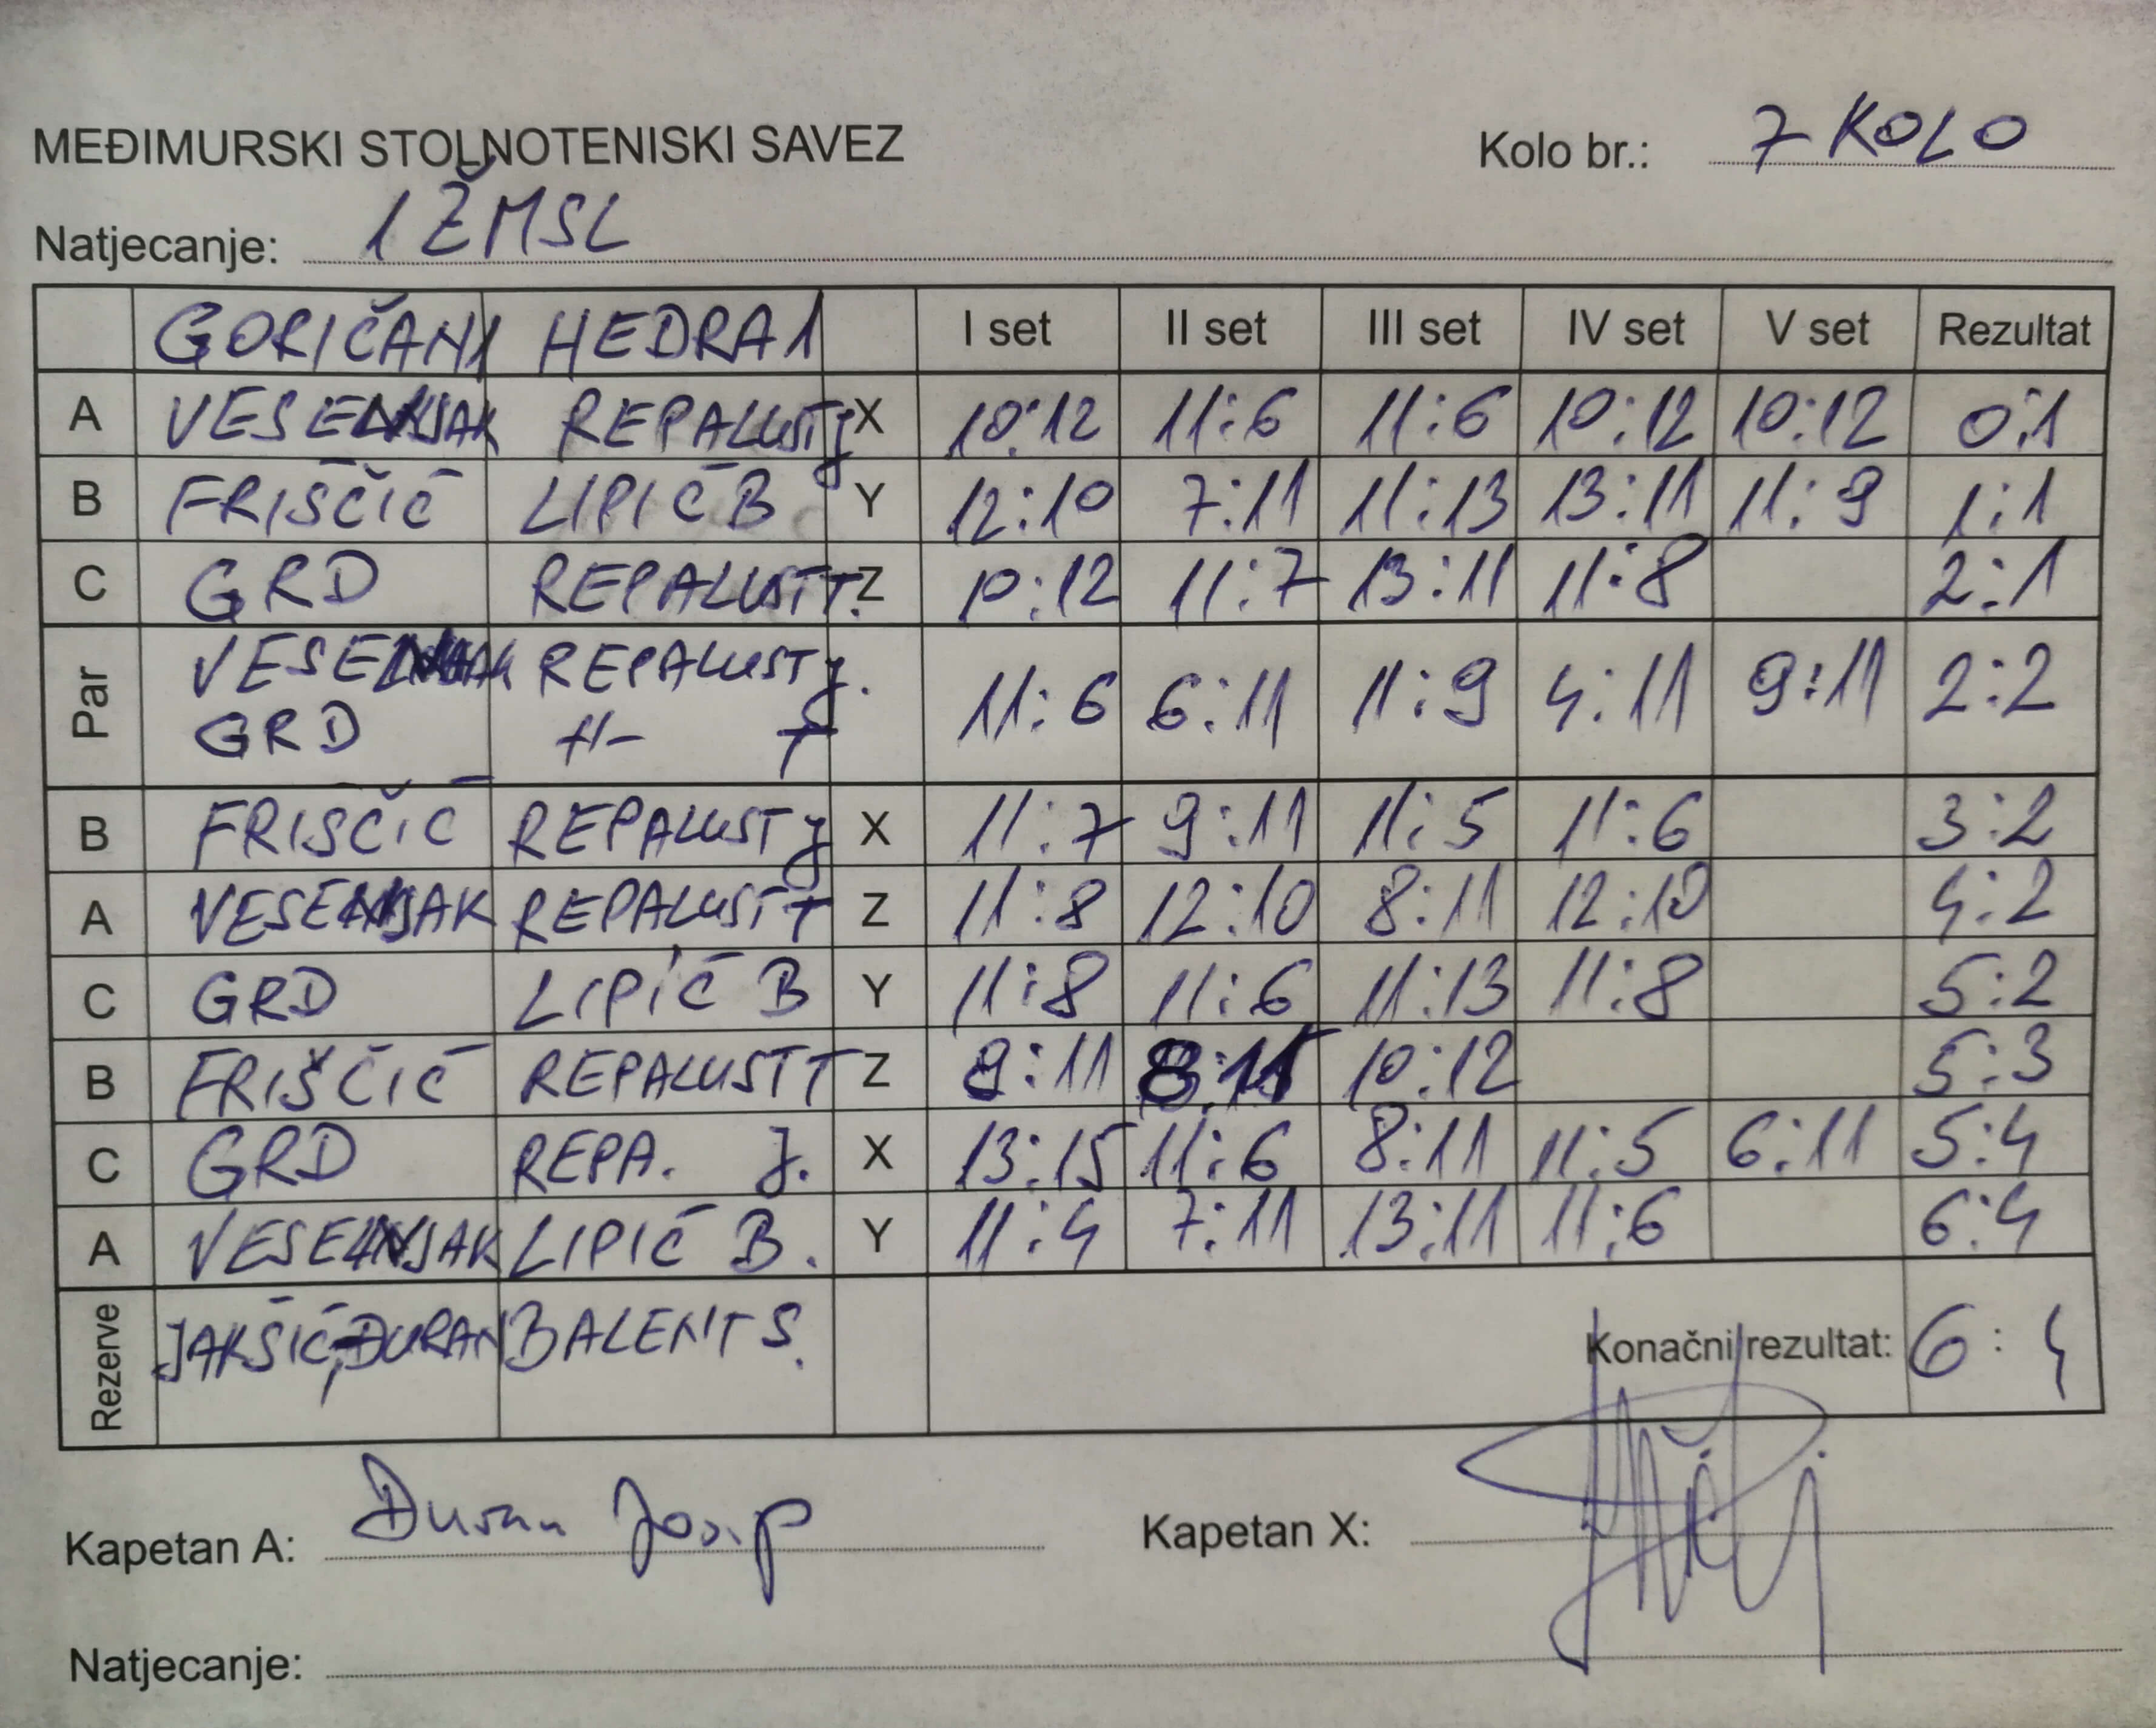 MEĐIMURSKI STOLNOTENISKI SAVEZ Kolo br.: 7 KOLO
Natjecanje: 1 ŽMSL
GORIČAN 1 HEDRA 1 I set II set III set IV set V set Rezultat
A VESENJAK REPALUST J X 10:12 11:6 11:6 10:12 10:12 0:1
B FRIŠČIĆ LIPIĆ B Y 12:10 7:11 11:13 13:11 11:9 1:1
C GRD REPALUST T. Z 10:12 11:7 13:11 11:8 2:1
Par VESENJAK REPALUST J.
GRD -II- T 11:6 6:11 11:9 4:11 9:11 2:2
B FRISČIĆ REPALUST J X 11:7 9:11 11:5 11:6 3:2
A VESENJAK REPALUST T Z 11:8 12:10 8:11 12:10 4:2
C GRD LIPIĆ B Y 11:8 11:6 11:13 11:8 5:2
B FRIŠČIĆ REPALUST T Z 9:11 8:11 10:12 5:3
C GRD REPA. J. X 13:15 11:6 8:11 11:5 6:11 5:4
A VESENJAK LIPIĆ B. Y 11:4 7:11 13:11 11:6 6:4
Rezerve JAKŠIĆ, ĐURAN BALENT S. Konačni rezultat: 6:4
Kapetan A: Đuran Josip Kapetan X:
Natjecanje: